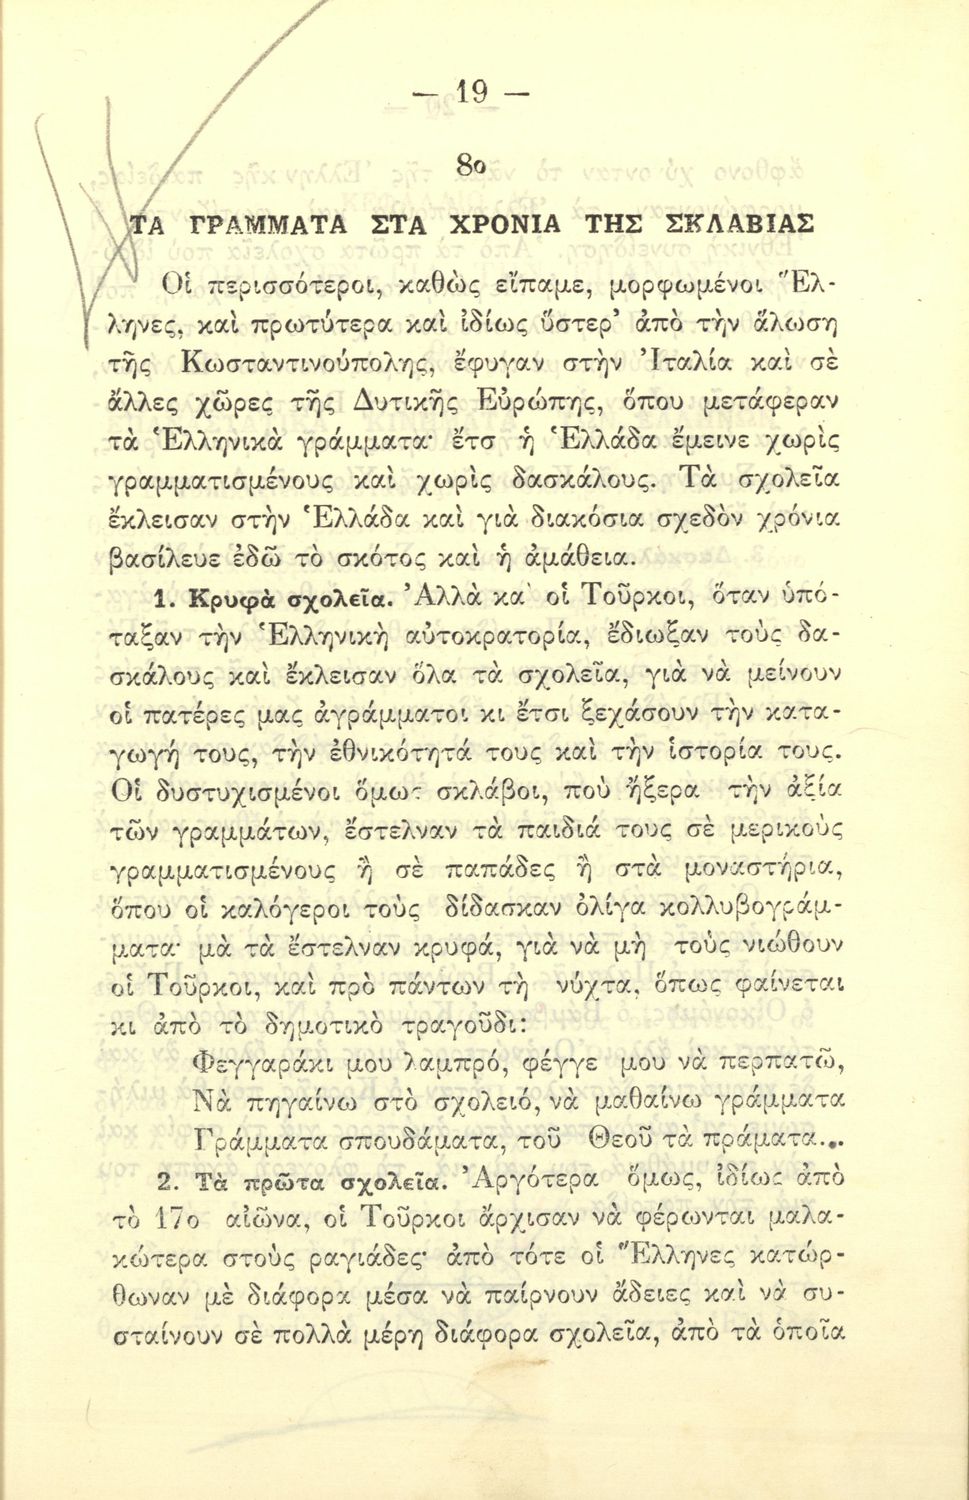 — 19 —
8ο
ΤΑ ΓΡΑΜΜΑΤΑ ΣΤΑ ΧΡΟΝΙΑ ΤΗΣ ΣΚΛΑΒΙΑΣ
Οἱ περισσότεροι, καθὼς εἴπαμε, μορφωμένοι Ἕλ-
ληνες, καὶ πρωτύτερα καὶ ἰδίως ὕστερ’ ἀπὸ τὴν ἅλωση
τῆς Κωσταντινούπολης, ἔφυγαν στὴν Ἰταλία καὶ σὲ
ἄλλες χῶρες τῆς Δυτικῆς Εὐρώπης, ὅπου μετάφεραν
τὰ Ἑλληνικὰ γράμματα· ἔτσ ἡ Ἑλλάδα ἔμεινε χωρὶς
γραμματισμένους καὶ χωρὶς δασκάλους. Τὰ σχολεῖα
ἔκλεισαν στὴν Ἑλλάδα καὶ γιὰ διακόσια σχεδὸν χρόνια
βασίλευε ἐδῶ τὸ σκότος καὶ ἡ ἀμάθεια.
1. Κρυφὰ σχολεῖα. Ἀλλὰ κα ̓ οἱ Τοῦρκοι, ὅταν ὑπό-
ταξαν τὴν Ἑλληνικὴ αὐτοκρατορία, ἔδιωξαν τοὺς δα-
σκάλους καὶ ἔκλεισαν ὅλα τὰ σχολεῖα, γιὰ νὰ μείνουν
οἱ πατέρες μας ἀγράμματοι κι ἔτσι ξεχάσουν τὴν κατα-
γωγή τους, τὴν ἐθνικότητά τους καὶ τὴν ἱστορία τους.
Οἱ δυστυχισμένοι ὅμως σκλάβοι, ποὺ ἤξερα τὴν ἀξία
τῶν γραμμάτων, ἔστελναν τὰ παιδιά τους σὲ μερικοὺς
γραμματισμένους ἢ σὲ παπάδες ἢ στὰ μοναστήρια,
ὅπου οἱ καλόγεροι τοὺς δίδασκαν ὀλίγα κολλυβογράμ-
ματα· μὰ τὰ ἔστελναν κρυφά, γιὰ νὰ μὴ τοὺς νιώθουν
οἱ Τοῦρκοι, καὶ πρὸ πάντων τὴ νύχτα, ὅπως φαίνεται
κι ἀπὸ τὸ δημοτικὸ τραγοῦδι:
Φεγγαράκι μου λαμπρό, φέγγε μου νὰ περπατῶ,
Νὰ πηγαίνω στὸ σχολειό, νὰ μαθαίνω γράμματα
Γράμματα σπουδάματα, τοῦ Θεοῦ τὰ πράματα...
2. Τὰ πρῶτα σχολεῖα. Ἀργότερα ὅμως, ἰδίως ἀπὸ
τὸ 17ο αἰῶνα, οἱ Τοῦρκοι ἄρχισαν νὰ φέρωνται μαλα-
κώτερα στοὺς ραγιάδες· ἀπὸ τότε οἱ Ἕλληνες κατώρ-
θωναν μὲ διάφορα μέσα νὰ παίρνουν ἄδειες καὶ νὰ συ-
σταίνουν σὲ πολλὰ μέρη διάφορα σχολεῖα, ἀπὸ τὰ ὁποῖα